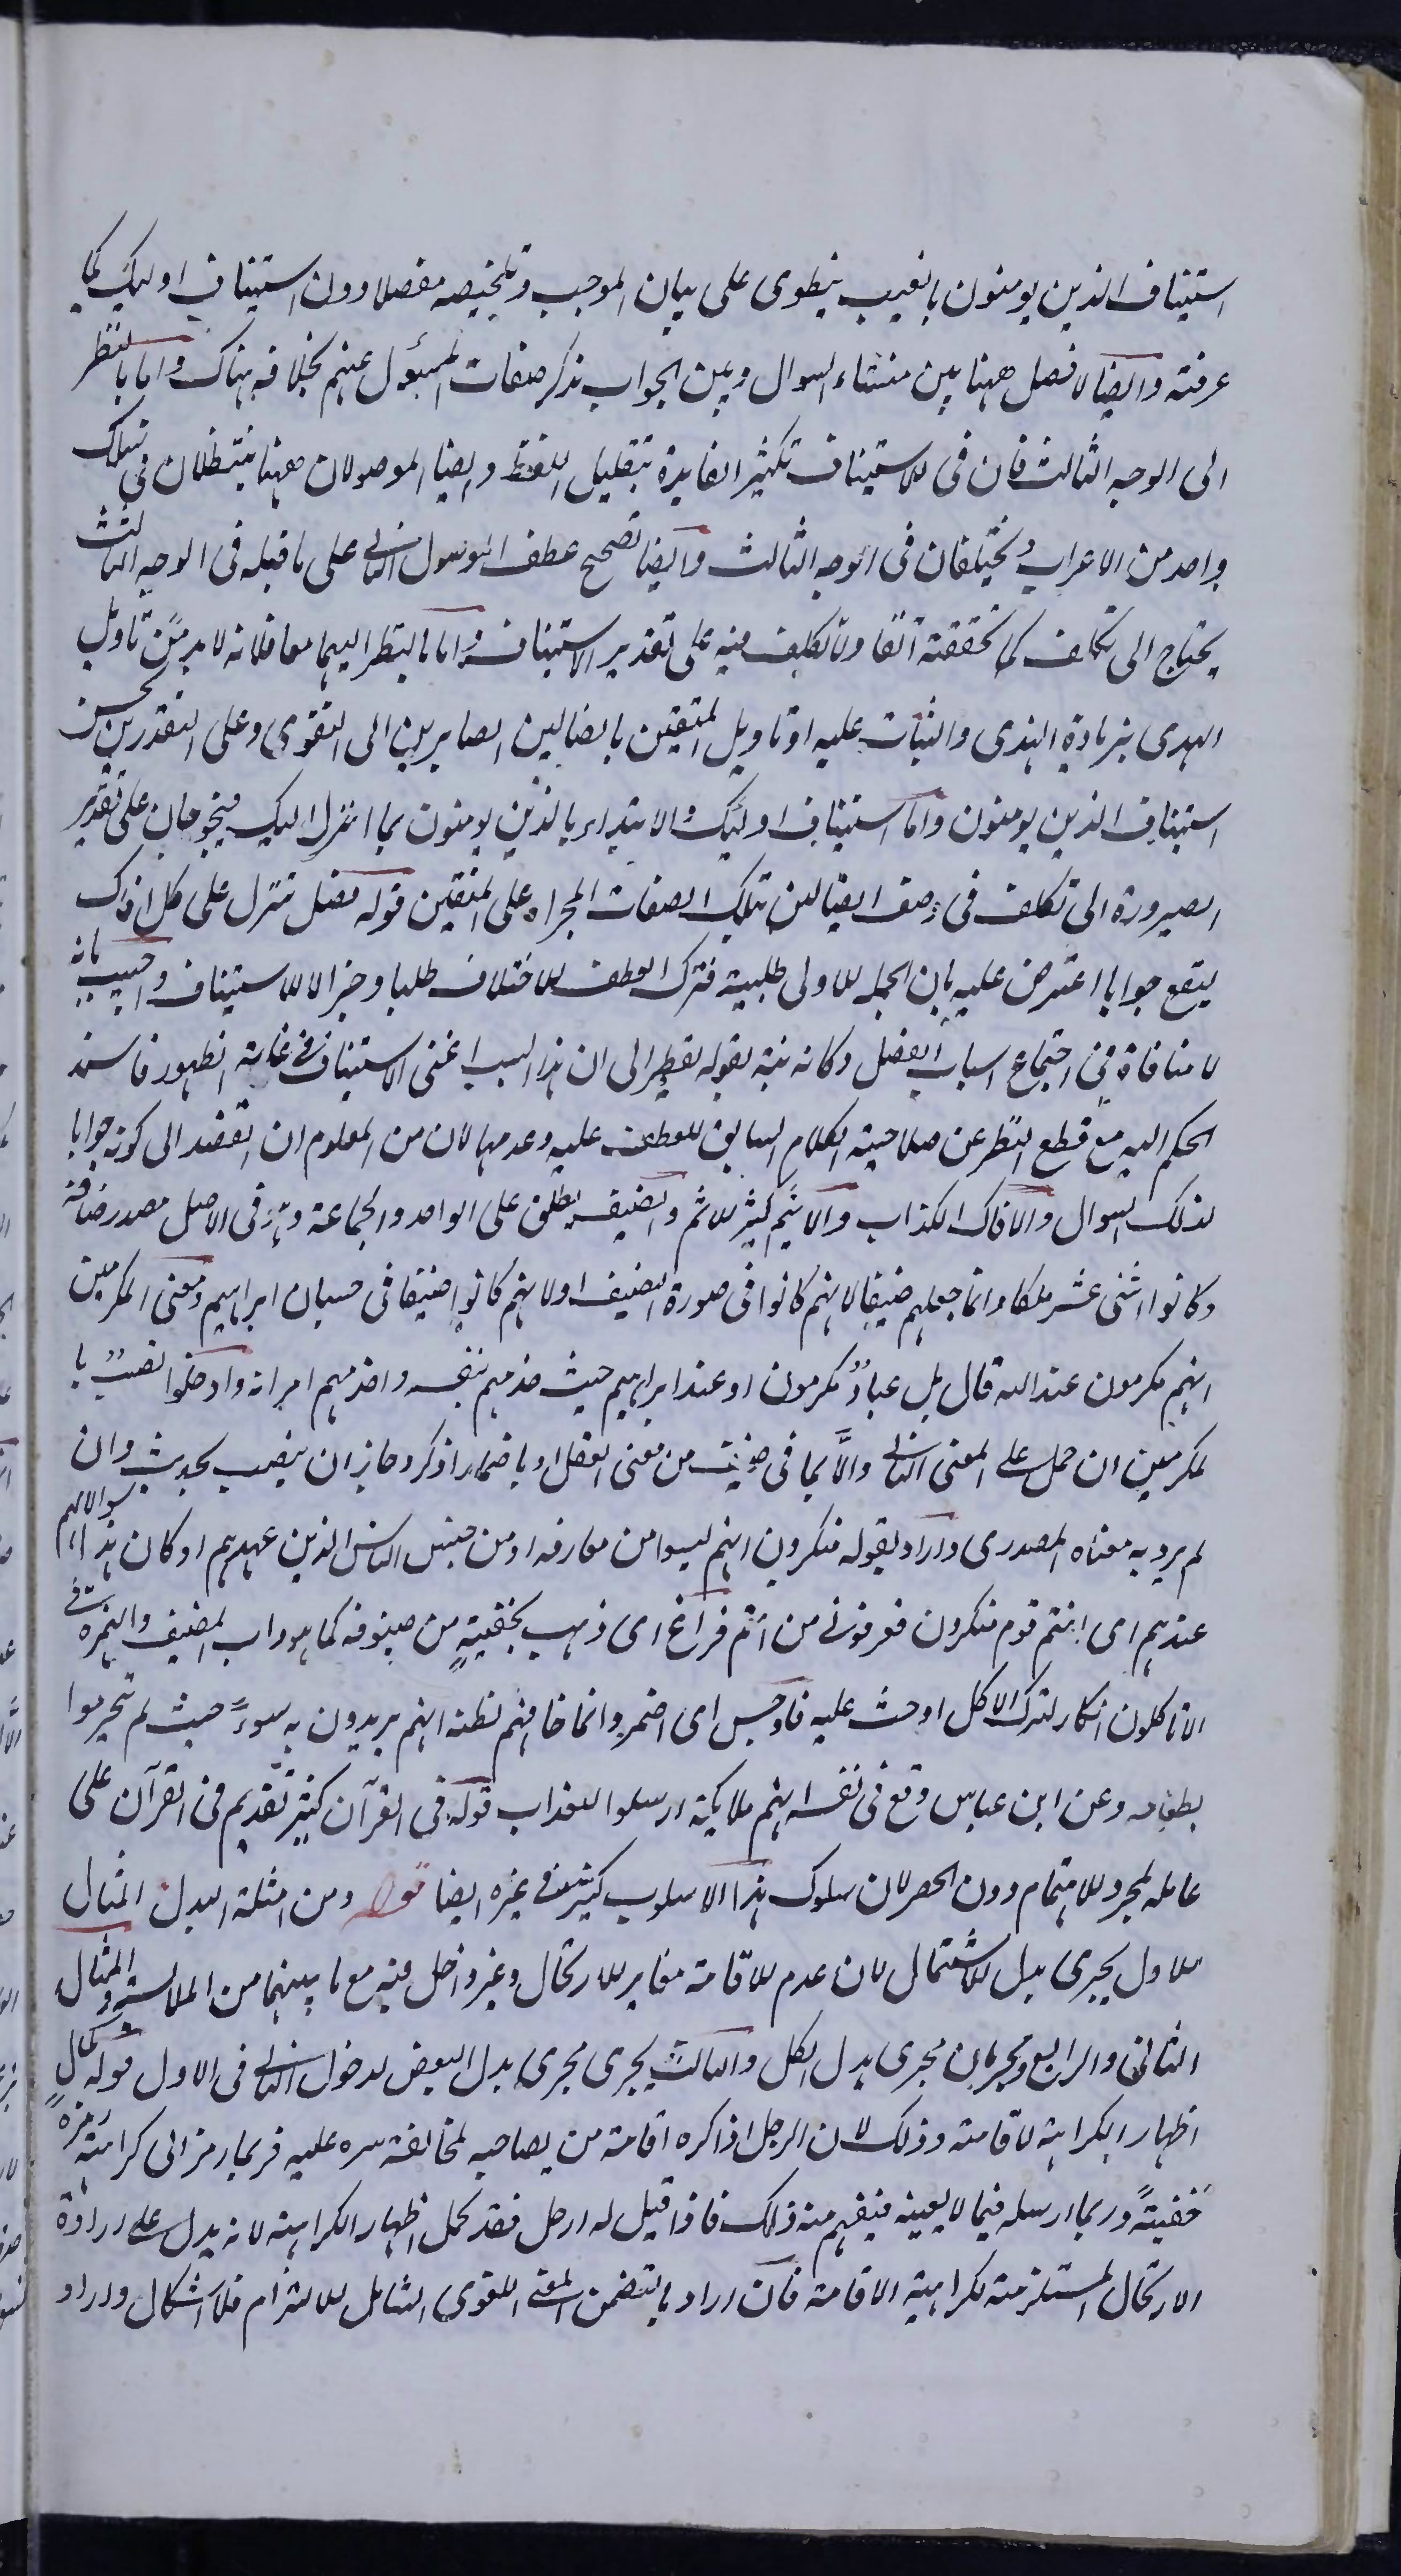 استيناف الذين يومنون بالغيب ينطوى على بيان الموجب وتلخيصه مفصلا دون استيناف اوليك كما
عرفته وايضا لا فصل ههنا بين منشاء السوال وبين الجواب بذكر صفات المسؤل عنهم بخلافه هناك واما بالنظر
الى الوجه الثالث فان فى الاستيناف تكثير الفايدة بتقليل اللفظ وايضا الموصولان ههنا ينتظمان فى سلك
واحد من الاعراب ويختلفان فى الوجه الثالث وايضا تصحيح عطف الموصول الثانى على ما قبله فى الوجه الثالث
يحتاج الى تكلف كما تحققته آنفا ولا تكلف فيه على تقدير الاستيناف واما بالنظر اليهما معا فلانه لا بد من تاويل
الهدى بزيادة الهدى والثبات عليه او تاويل المتقين بالضالين الصايرين الى التقوى وعلى التقديرين يحسن
استيناف الذين يومنون واما استيناف اوليك والابتداء بالذين يومنون بما انزل اليك فيحوجان على تقدير
الصيرورة الى تكلف فى وصف الضالين بتلك الصفات المجراه على المتقين قوله فصل تنزل على كل افاك
يقع جوابا اعترض عليه بان الجملة الاولى طلبية فترك العطف للاختلاف طلبا وخبرا لا للاستيناف واجيب بانه
لا منافاة فى اجتماع اسباب الفصل وكانه نبه بقوله نظرا الى ان هذا السبب اعنى الاستيناف فى غاية الظهور فاسند
الحكم اليه مع قطع النظر عن صلاحية الكلام السابق للعطف عليه وعدمها لان من المعلوم ان القصد الى كونه جوابا
لذلك السوال والافاك الكذاب والاثيم كثير الاثم والضيف يطلق على الواحد والجماعة وهو فى الاصل مصدر ضافه
وكانوا اثنى عشر ملكا وانما جعلهم ضيفا لانهم كانوا فى صورة الضيف او لانهم كانوا ضيفا فى حسبان ابراهيم ومعنى المكرمين
انهم مكرمون عند الله قال بل عباد مكرمون او عند ابراهيم حيث خدمهم بنفسه واخدمهم امراته واذ دخلوا نصب با
لمكرمين ان حمل على المعنى الثانى والا بما فى ضيف من معنى الفعل او باضمار اذكر وجاز ان ينصب بحديث وان
لم يرد به معناه المصدرى واراد بقوله منكرون انهم ليسوا من معارفه او من جنس الناس الذين عهدهم او كان هذا سوالا لهم
عندهم اى انتم قوم منكرون فعرفونى من انتم فراغ اى ذهب بخفية من ضيوفه كما هو داب المضيف والهمزة فى
الا تاكلون انكار لترك الاكل او حث عليه فاوجس اى اضمر وانما خافهم لظنه انهم يريدون به سوءً حيث لم يتحرموا
بطعامه وعن ابن عباس وقع فى نفسه انهم ملايكة ارسلوا للعذاب قوله فى القرآن كثير تقديم فى القرآن على
عامله لمجرد الاهتمام دون الحصر لان سلوك هذا الاسلوب كثير فى غيره ايضا قوله ومن امثلة البدل المثال
الاول يجرى بدل الاشتمال لان عدم الاقامة مغاير للارتحال وغير داخل فيه مع ما بينهما من الملابسة والمثال
الثانى والرابع يجريان مجرى بدل الكل والثالث يجرى مجرى بدل البعض لدخول الثانى فى الاول قوله كمال
اظهار الكراهة لاقامته وذلك لان الرجل اذا كره اقامة من يصاحبه لمخالفة سره عليه فربما رمز الى كراهته رمزة
خفيةً وربما ارسله فيما لا يعينه فيفهم منه ذلك فاذا قيل له ارحل فقد كمل اظهار الكراهة لانه يدل على ارادة
الارتحال المستلزمة لكراهية الاقامة فان اراد بالتضمن المعنى اللغوى الشامل للالتزام فلا اشكال وان اراد